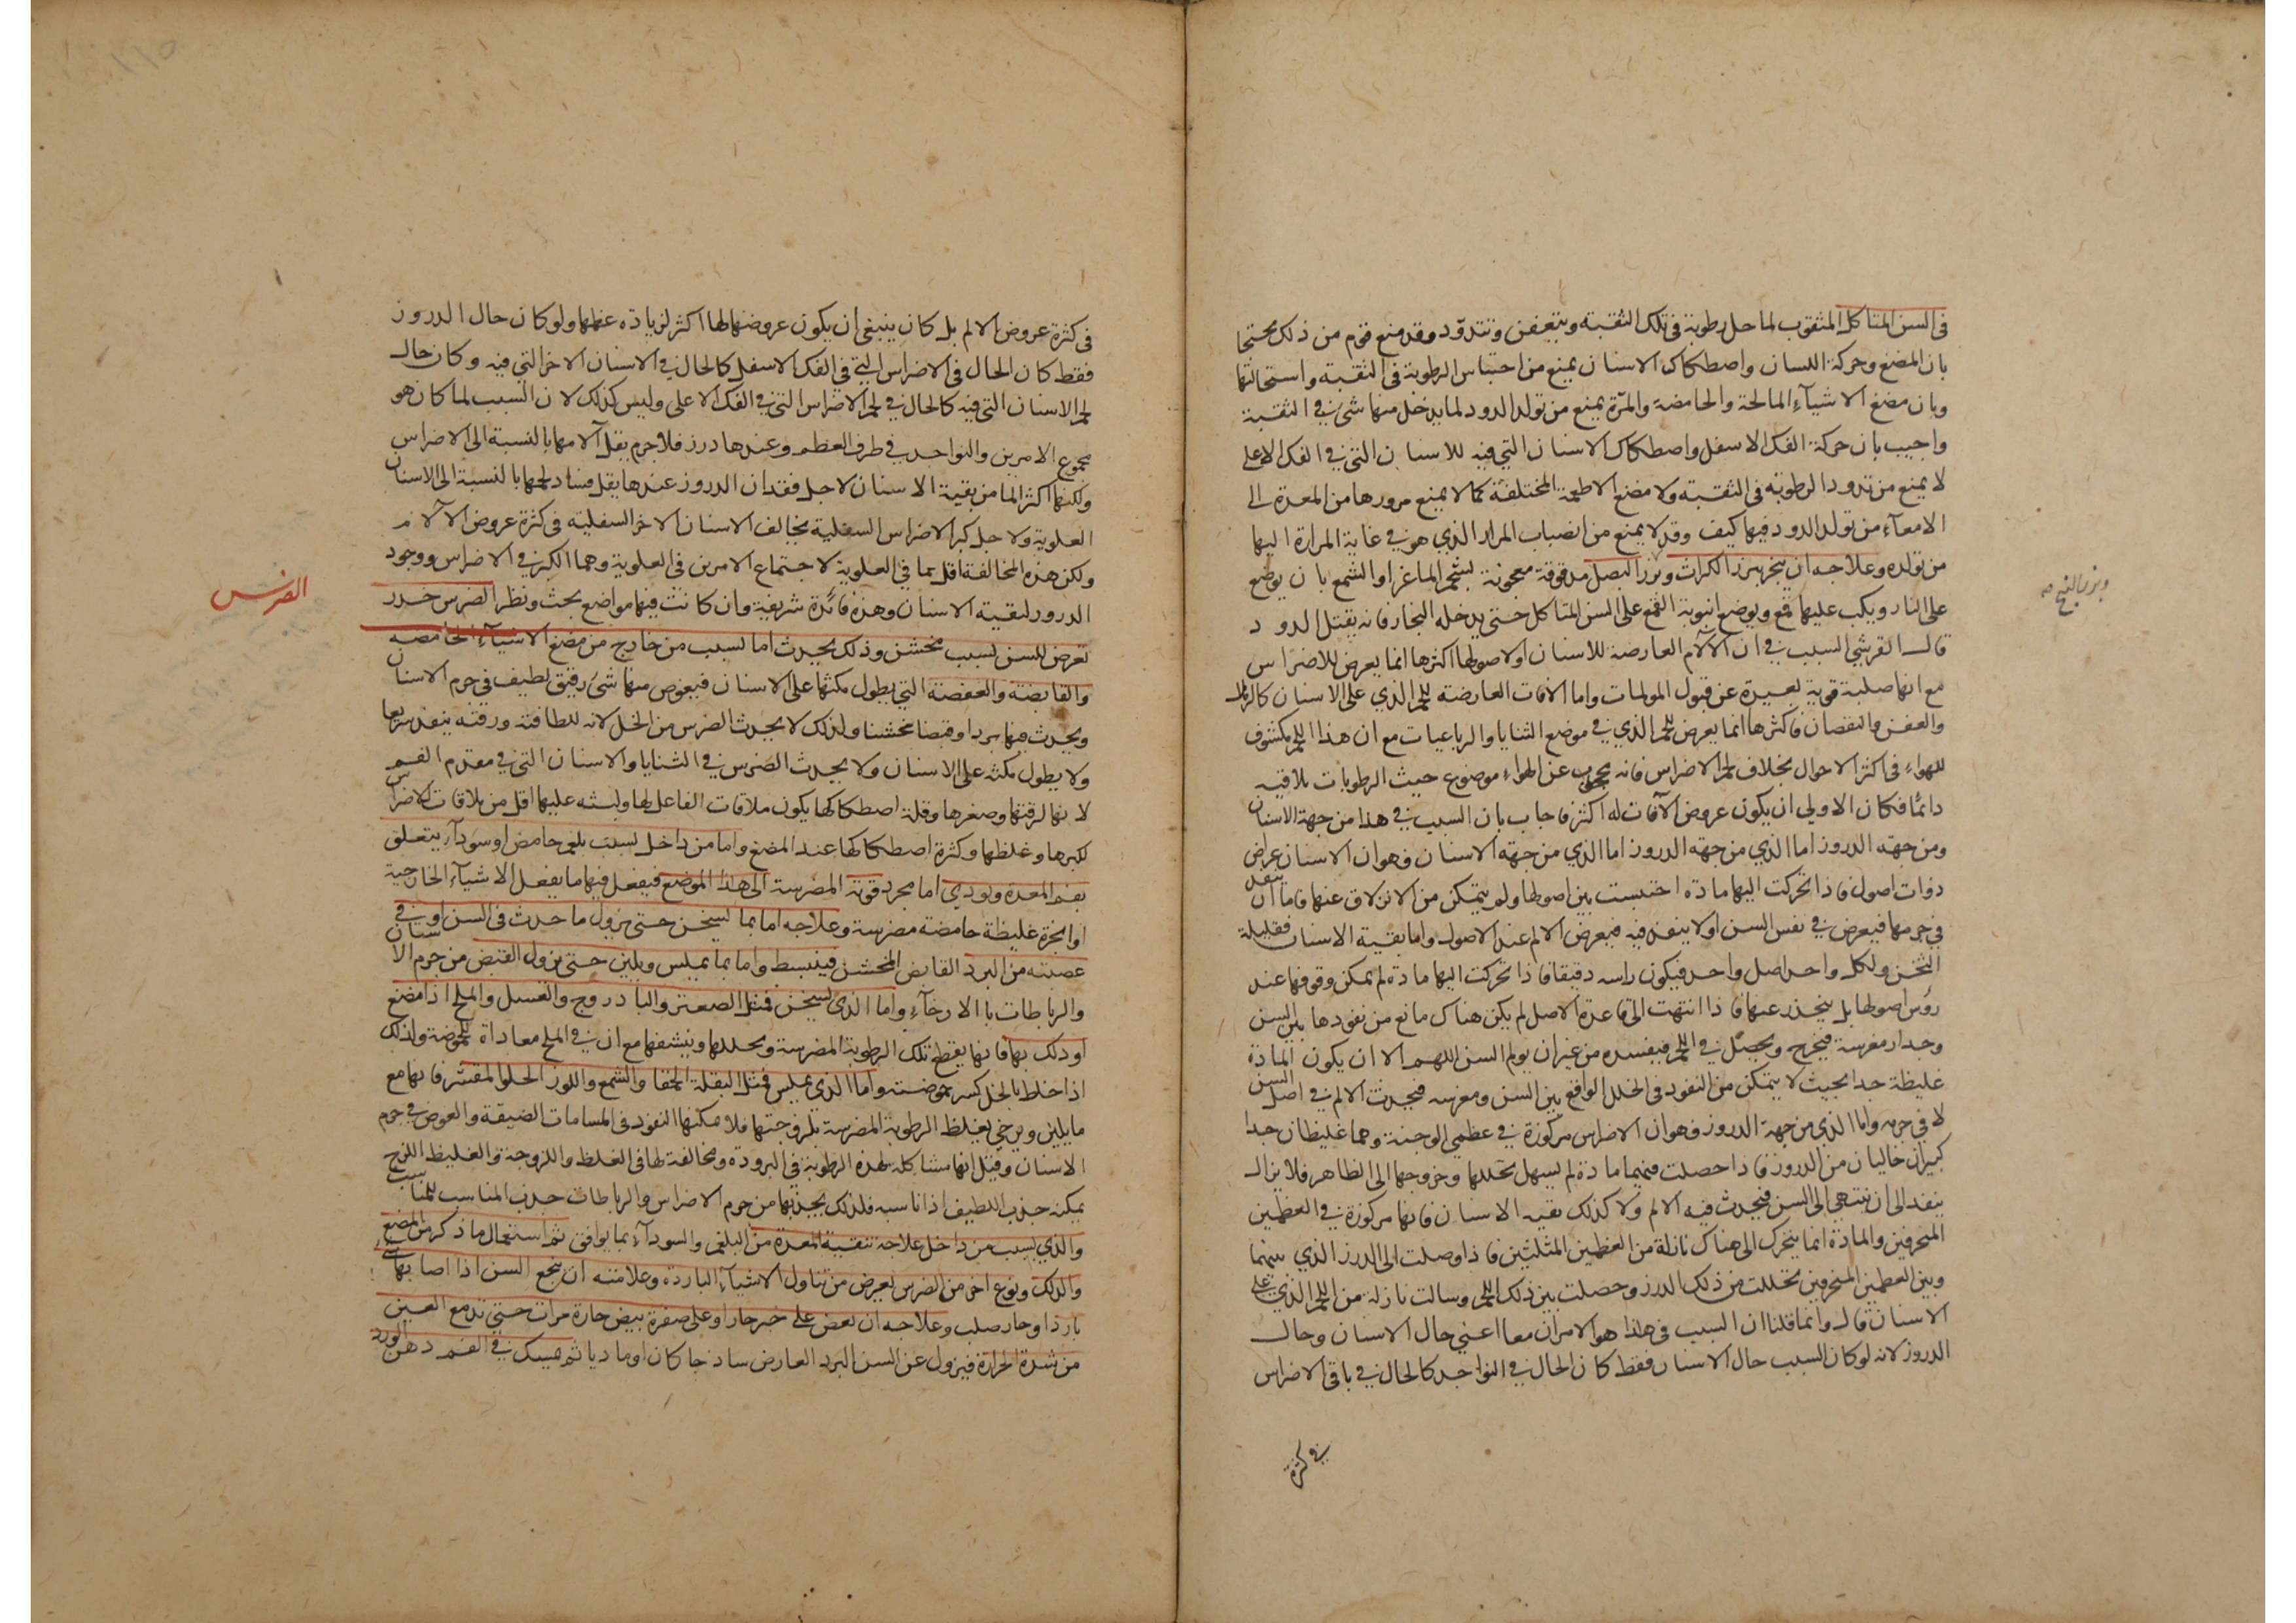 في السن المتاكل المثقوب لما حل رطوبة في تلك الثقبة ويتعفن وتتدود وقد منع قوم من ذلك محتجا
بان المضغ وحركة اللسان واصطكاك الاسنان يمنع من احتباس الرطوبة في الثقبة واستحالتها
وبان مضغ الاشياء المالحة والحامضة والمرة يمنع من تولد الدود لما يدخل منها شئ في الثقبة
واجيب بان حركة الفك الاسفل واصطكاك الاسنان التي فيه للاسنان التي في الفك الاعلى
لا يمنع من تدود الرطوبة في الثقبة ولا مضغ الاطعمة المختلفة كما لا يمنع مرورها من المعدة الى
الامعاء من تولد الدود فيها كيف وقد لا يمنع من انصباب المرار الذي هو في غاية المرارة اليها
من تولده وعلاجه ان يبخر ببزر الكراث وبزر البصل مدقوقة معجونة بشحم الماعز او الشمع بان يوضع
وبزر البنج صح
على النار ويكب عليها قمع ويوضع انبوبة القمع على السن المتاكل حتى يدخله البخار فانه يقتل الدود
قال القرشي السبب في ان الآلام العارضة للاسنان اولاصولها اكثرها انما يعرض للاضراس
مع انها صلبة قوية بعيدة عن قبول المولمات واما الافات العارضة للحم الذي على الاسنان كالترهل
والعفن والنقصان فاكثرها انما يعرض للحم الذي في موضع الثنايا والرباعيات مع ان هذا اللحم مكشوف
للهواء في اكثر الاحوال بخلاف لحم الاضراس فانه محجوب عن الهواء موضوع حيث الرطوبات تلاقيه
دائما فكان الاولى ان يكون عروض الآفات له اكثر فاجاب بان السبب في هذا من جهة الاسنان
ومن جهة الدروز اما الذي من جهة الدروز اما الذي من جهة الاسنان فهو ان الاسنان عراض
ذوات اصول فاذا تحركت اليها مادة احتبست بين اصولها ولم يتمكن من الانزلاق عنها فاما ان تنفذ
في جرمها فيعرض في نفس السن او لا ينفذ فيه فيعرض الالم عند الاصول واما بقية الاسنان فقليلة
الثخن ولكل واحد اصل واحد فيكون راسه دقيقا فاذا تحركت اليها مادة لم يمكن وقوفها عند
رؤس اصولها بل ينحدر عنها فاذا انتهت الى قاعدة الاصل لم يكن هناك مانع من نفودها بين السن
وجدار مغرسه فيخرج ويحصل في اللحم فيفسده من غير ان يولم السن اللهم الا ان يكون المادة
غليظة جدا بحيث لا يتمكن من النفود في الخلل الواقع بين السن ومغرسه فيحدث الالم في اصل السن
لا في جرمه واما الذي من جهة الدروز فهو ان الاضراس مركوزة في عظمي الوجنة وهما غليظان جدا
كبيران خاليان من الدروز فاذا حصلت فيهما مادة لم يسهل تحللها وخروجها الى الظاهر فلا يزال
ينفد الى ان ينتهي الى السن فيحدث فيه الالم ولا كذلك بقيه الاسنان فانها مركوزة في العظمين
المنحرفين والمادة انما يتحرك الى هناك نازلة من العظمين المثلثين فاذا وصلت الى الدرز الذي بينهما
وبين العظمين المنحرفين تحللت من ذلك الدرز وحصلت بين ذلك اللحم وسالت نازلة من اللحم الذي على
الاسنان قال وانما قلنا ان السبب في هذا هو الامران معا اعني حال الاسنان وحال
الدروز لانه لو كان السبب حال الاسنان فقط كان الحال في النواجد كالحال في باقي الاضراس
في كثرة
في كثرة عروض الالم بل كان ينبغي ان يكون عروضها لها اكثر لزيادة عظمها ولو كان حال الدروز
فقط كان الحال في الاضراس التي في الفك الاسفل كالحال في الاسنان الاخر التي فيه وكان حال
لحم الاسنان التي فيه كالحال في لحم الاضراس التي في الفك الاعلى وليس كذلك لان السبب لما كان هو
مجموع الامرين والنواجد في طرف العظم وعندها درز فلا جرم يقل آلامها بالنسبة الى الاضراس
ولكنها اكثر الما من بقية الاسنان لاجل فقدان الدروز عندها يقل فساد لحمها بالنسبة الى الاسنان
العلوية ولاجل كبر الاضراس السفلية يخالف الاسنان الاخر السفلية في كثرة عروض الآلام
ولكن هذه المخالفة اقل مما في العلوية لاجتماع الامرين في العلوية وهما الكبر في الاضراس ووجود
الدرور لبقية الاسنان وهذه فائدة شريفة وان كانت فيها مواضع بحث ونظر الضرس خدر
الضرس
تعرض للسن بسبب مخشن وذلك يحدث اما بسبب من خارج من مضغ الاشياء الحامضه
والقابضة والعفصة التي يطول مكثها على الاسنان فيغوص منها شئ رقيق لطيف في جرم الاسنان
ويحدث فيها بردا وقبضا مخشنا ولذلك لا يحدث الضرس من الخل لانه للطافته ورقته ينفد سريعا
ولا يطول مكثه على الاسنان ولا يحدث الضرس في الثنايا والاسنان التي في مقدم الفم
لانها لرقتها وصغرها وقلة اصطكاكها يكون ملاقات الفاعل لها ولبثه عليها اقل من ملاقات الاضراس
لكبرها وغلظها وكثرة اصطكاكها عند المضغ واما من داخل بسبب بلغم حامض او سوداء يتعلق
بفم المعدة ويودي اما مجرد قوته المضرسة الى هذا الموضع فيفعل فيها ما يفعل الاشياء الخارجية
او ابخرة غليظة حامضة مضرسة وعلاجه اما بما يسخن حتى يزول ما حدث في السن او في
عصبته من البرد القابض المخشن فينبسط واما بما يملس ويلين حتى يزول القبض من جرم الاسنان
والرباطات بالارخاء واما الذي يسخن فمثل الصعتر والبادروج والعسل والملح اذا مضغ
او دلك بها فانها يقطع تلك الرطوبة المضرسة ويحللها وينشفها مع ان في الملح معاداة للحموضة ولذلك
اذا خلط بالخل كسر حموضته واما الذي يملس فمثل البقلة الحمقا والشمع واللوز الحلو المقشر فانها مع
ما يلين ويرخي يغلظ الرطوبة المضرسة بلزوجتها فلا مكنها النفود في المسامات الضيقة والغوص في جرم
الاسنان وقيل انها مشاكلة لهذه الرطوبة في البرودة ومخالفة لها في الغلظ واللزوجة والغليظ اللزج
يمكنه جذب اللطيف اذا ناسبه فلذلك يجذبها من جرم الاضراس والرباطات جذب المناسب للمناسب
والذي بسبب من داخل علاجه تنقية المعدة من البلغم والسوداء بما يوافق ثم استعمال ما ذكر من المضغ
والدلك ونوع اخر من الضرس يعرض من تناول الاشياء الباردة وعلامته ان يتجع السن اذا اصابها شئ
بارد او حار صلب وعلاجه ان يعض على خبز حار او على صفرة بيض حارة مرات حتى تدمع العين
من شدة الحرارة فيزول عن السن البرد العارض ساذجا كان او ماديا ثم يمسك في الفم دهن الورد